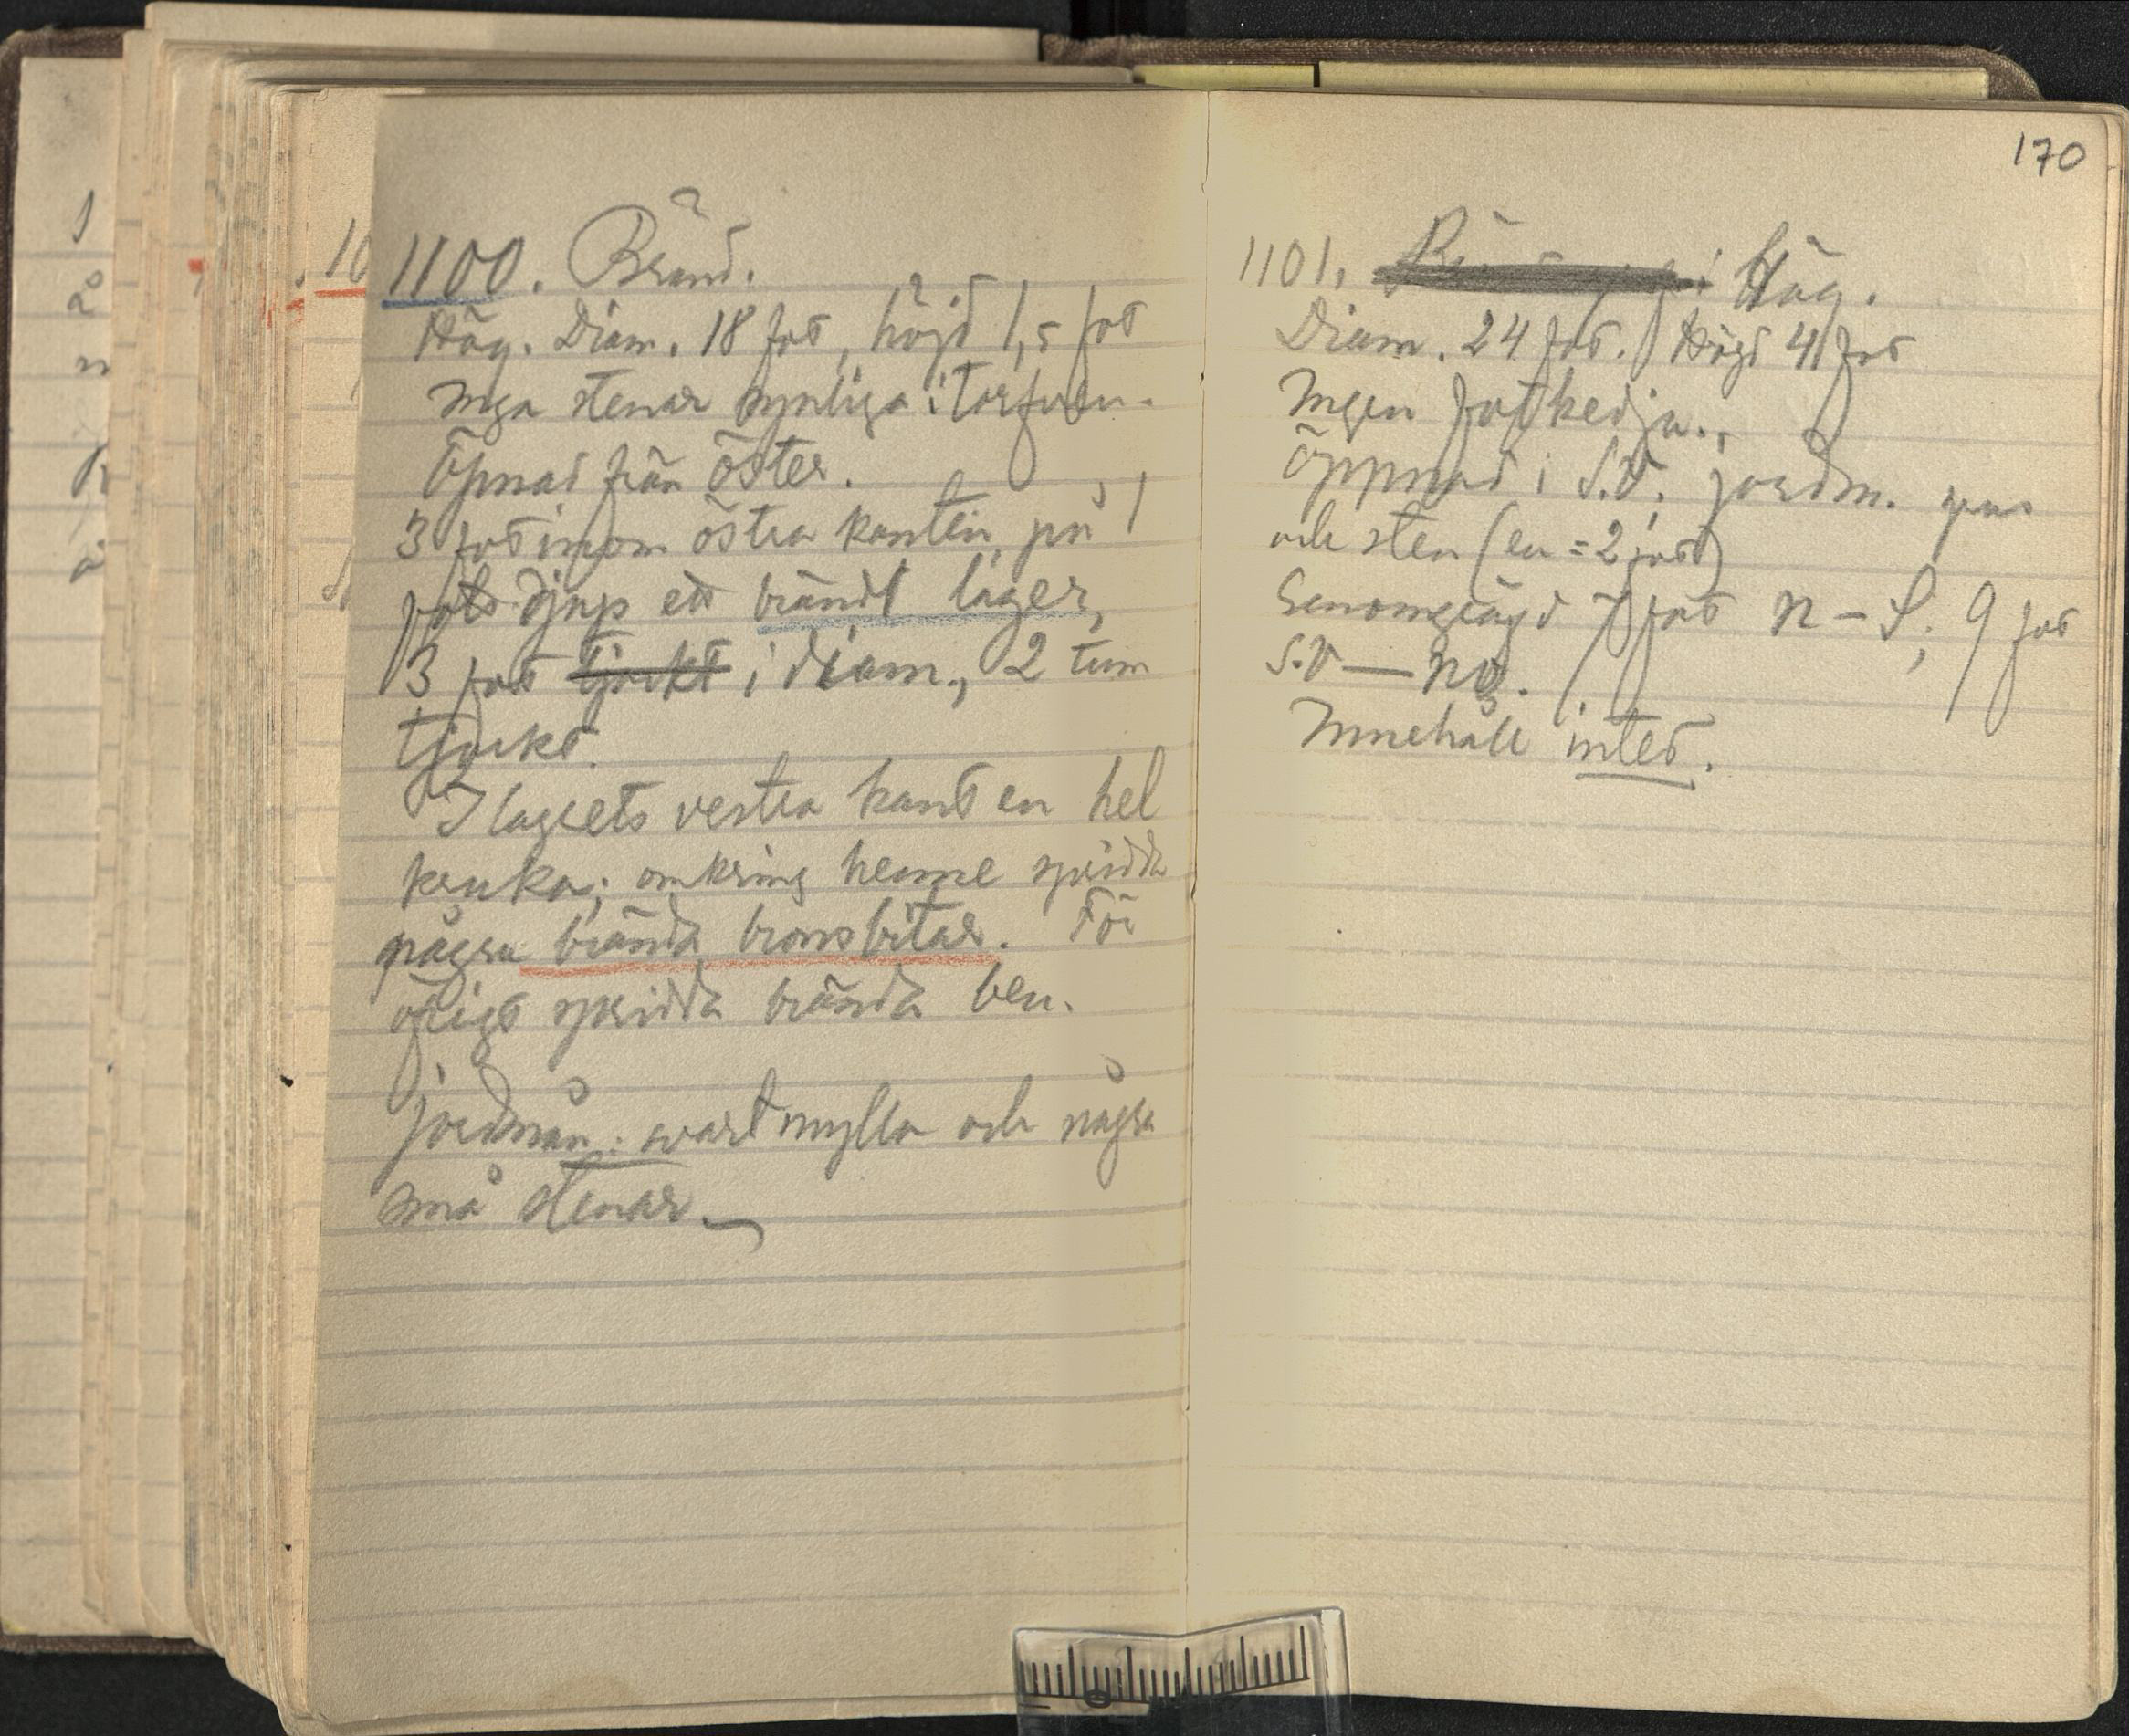 1100. Bränd.
Hög. Diam. 18 fot, höjd 1,5 fot
Inga stenar synliga i torfven.
Öpnad från öster.
3 fot inom östra kanten, på 1
fots djup ett brändt lager,
3 fot tjockt i diam., 2 tum
tjockt.
I lagrets vestra kant en hel
kruka; omkring henne spridda
några brända bronsbitar. För
öfrigt spridda brända ben.
jordmån: svartmylla och några
små stenar
170
1101. Hög.
Diam. 24 fot. Höjd 4 fot
Ingen fotkedja.
Öppnad i S.V. jordm. grus
och sten (en = 2 fot)
Genomgrägd 7 fot N - S; 9 fot
S.V — NO.
Innehåll intet.